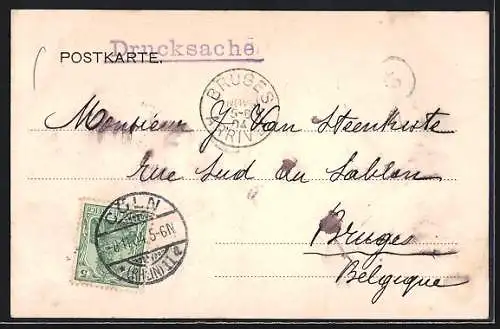 Drucksache
POSTKARTE.
BRUGES
5-6
04
ARRIV
Monsieur J. Van Steenkiste
rue Sud du Sablon
Bruges
Belgique
CÖLN
5-6N
5